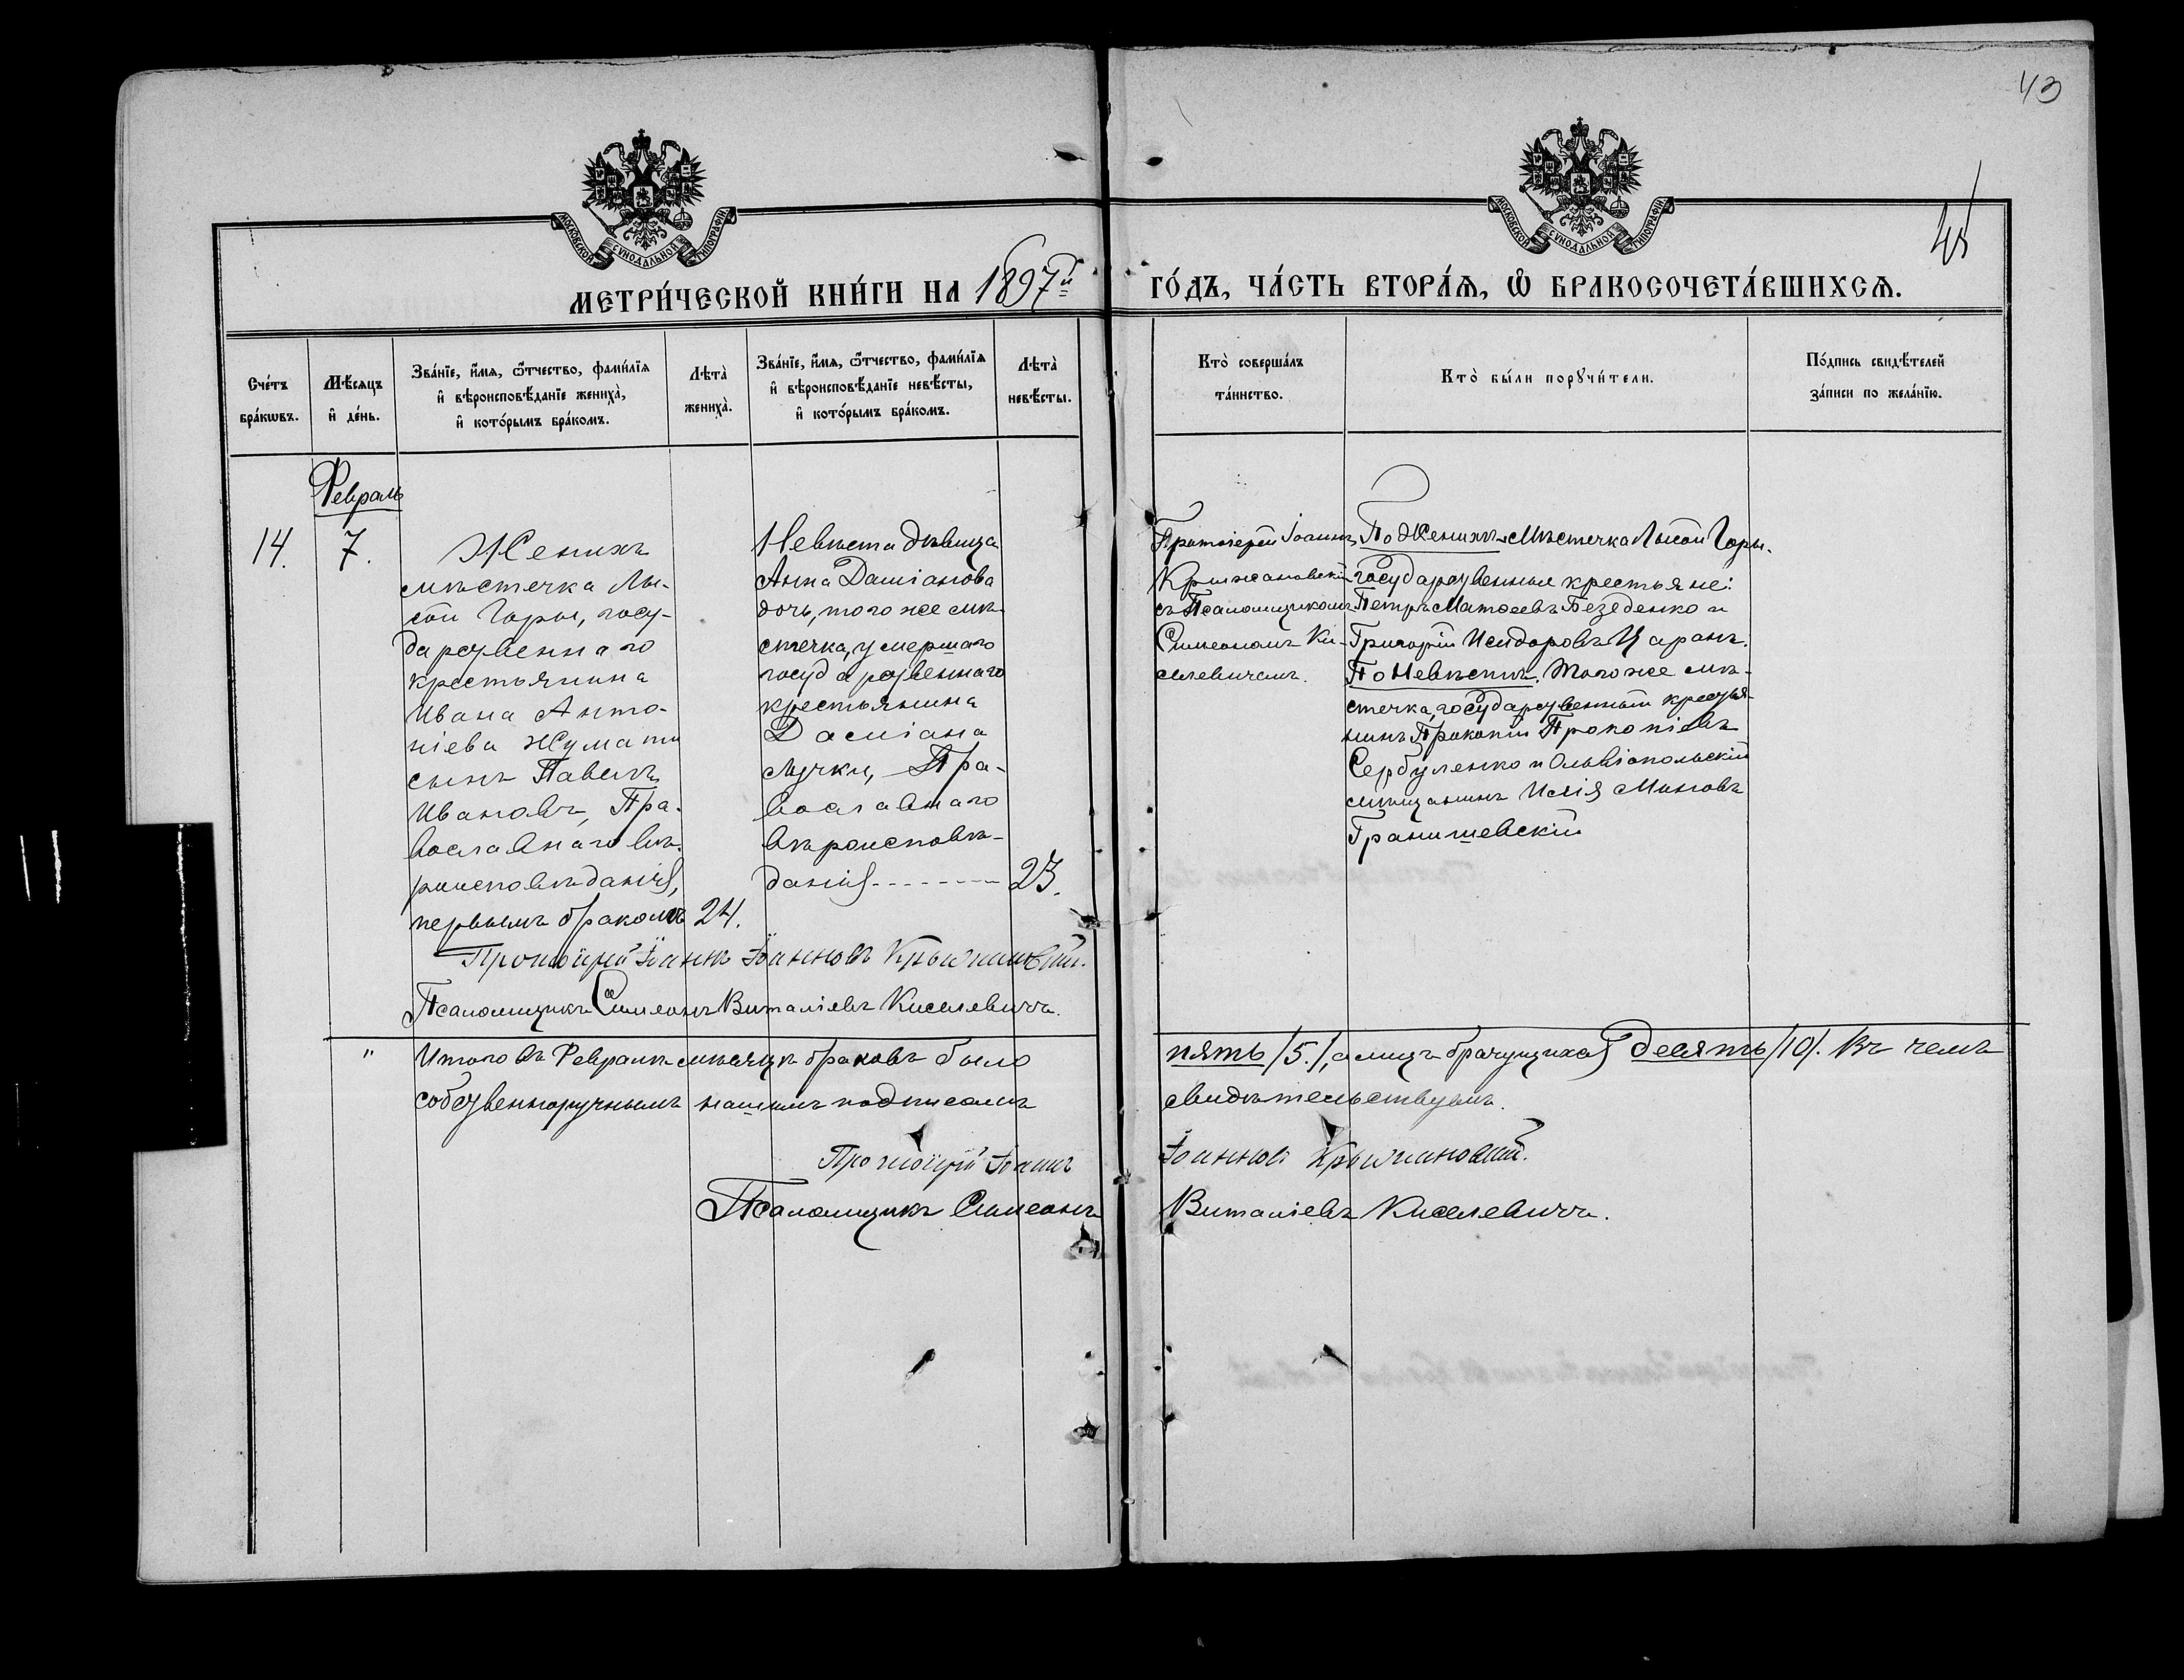 43
45
МОСКОВСКОЙ СУНОДАЛЬНОЙ ТИПОГРАФІИ
МОСКОВСКОЙ СУНОДАЛЬНОЙ ТИПОГРАФІИ
МЕТРИ́ЧЕСКОЙ КНИ́ГИ НА 1897й ГО́ДЪ, ЧА́СТЬ ВТОРА́Ѧ, Ѽ БРАКОСОЧЕТА́ВШИХСѦ.
Сче́тъ
бра́кѡвъ.
Мѣ́сяцъ
и҆ де́нь.
Зва́нїе, и҆́мѧ, ѻ҆́тчество, фами́лїѧ
и҆ вѣроисповѣ́данїе жениха̀,
и҆ кото́рымъ бра́комъ.
Лѣта̀
жениха̀.
Зва́нїе, и҆́мѧ, ѻ҆́тчество, фами́лїѧ
и҆ вѣроисповѣ́данїе невѣ́сты,
и҆ кото́рымъ бра́комъ.
Лѣта̀
невѣ́сты.
Кто̀ соверша́лъ
та́инство.
Кто̀ бы́ли порꙋчи́тели.
По́дпись свидѣ́телей
за́писи по жела́нїю.
Февраль
14.
7.
Женихъ
мѣстечка Лы-
сой Горы, госу-
дарственнаго
крестьянина
Ивана Анто-
ніева Жумати
сынъ Павелъ
Ивановъ, Пра-
вославнаго вѣ-
роисповѣданія,
первымъ бракомъ
24.
Невѣста дѣвица
Анна Даміанова
дочь, того же мѣ-
стечка, умершаго
государственнаго
крестьянина
Даміана
Мучки, Пра-
вославнаго
вѣроисповѣ-
данія
23.
Протоіерей Іоаннъ
Крыжановскій
съ Псаломщикомъ
Симеономъ Ки-
селевичемъ.
По Женихѣ: Мѣстечка Лысой Горы.
государственные крестьяне:
Петръ Матѳеевъ Безеденко и
Григорій Исидоровъ Царанъ.
По Невѣстѣ. Того же мѣ-
стечка, государственный крестья-
нинъ Прокопій Прокопіевъ
Сербуленко и Ольвіопольскій
мѣщанинъ Илія Миновъ
Гранишевскій
Протоіерей Іоаннъ Іоанновъ Крыжановскій.
Псаломщикъ Симеонъ Виталіевъ Киселевичъ.
" Итого въ Февралѣ мѣсяцѣ браковъ было пять /5./, а лицъ брачущихся десять /10/. Въ чемъ
собственноручнымъ нашимъ подписомъ свидѣтельствуемъ.
Протоіерей Іоаннъ Іоанновъ Крыжановскій.
Псаломщикъ Симеонъ Виталіевъ Киселевичъ.